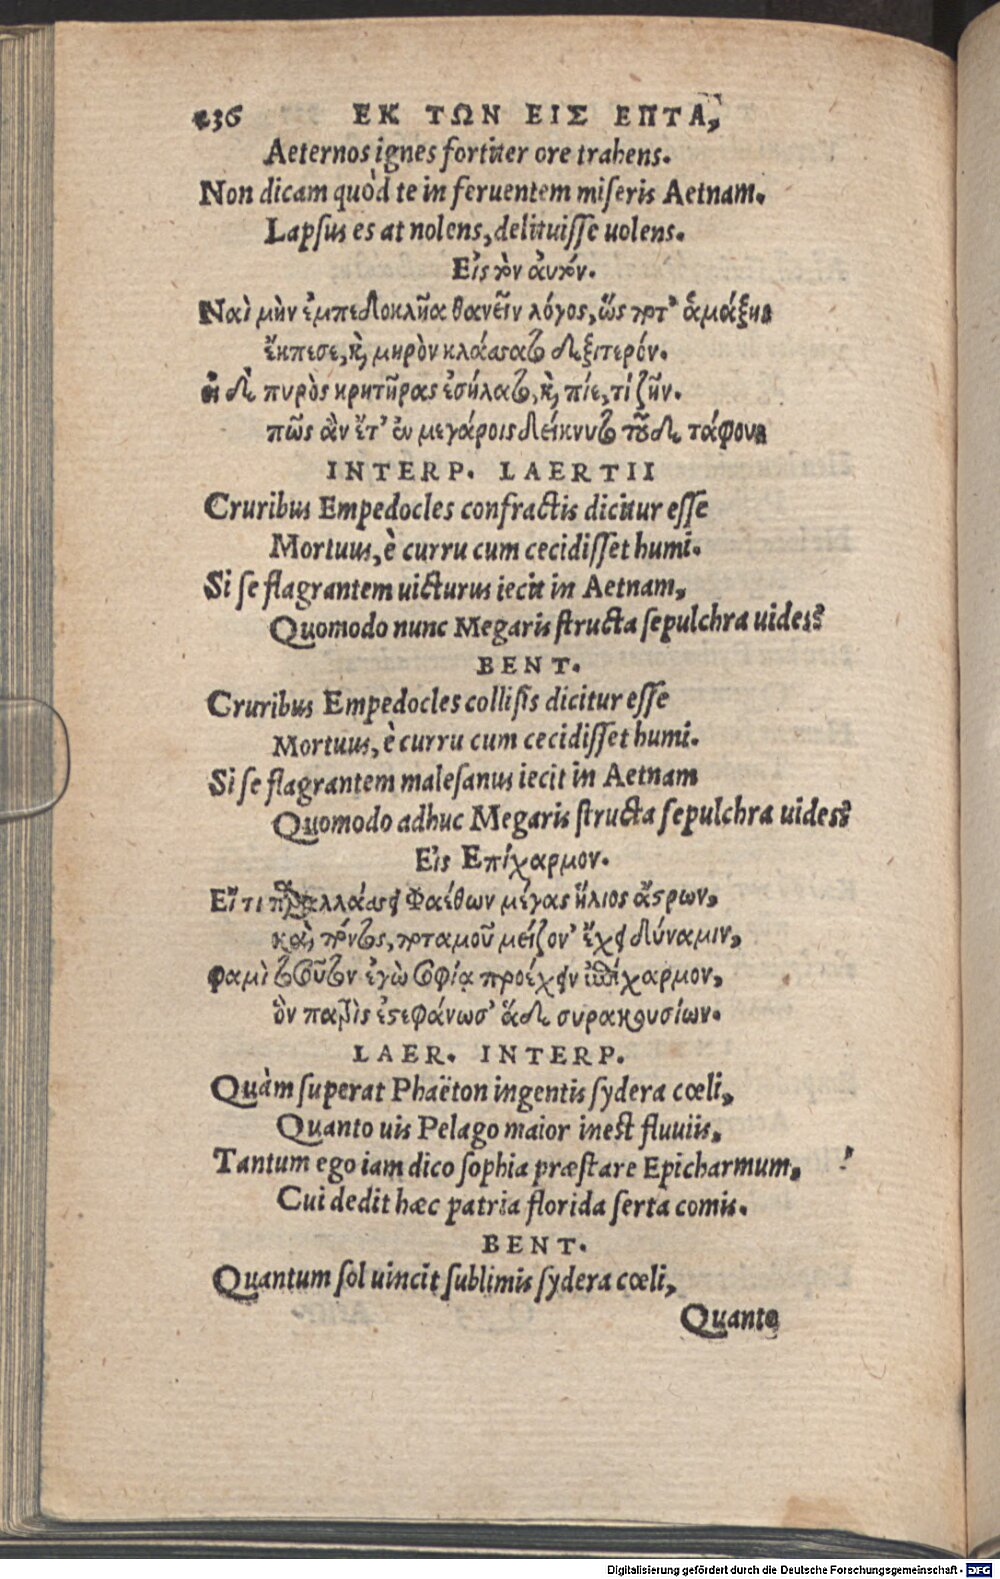 236 ΕΚ ΤΩΝ ΕΙΣ ΕΠΤΑ,
Aeternos ignes fortiter ore trahens.
Non dicam quòd te in feruentem miseris Aetnam.
Lapsus es at nolens, delituisse uolens.
Εἰς τὸν ἀυτόν.
Ναὶ μὴν ἐμπεδοκλῆα θανεῖν λόγος, ὥς ποτ' ἁμάξης
ἔκπεσε, καὶ μηρὸν κλάσσατο δεξιτερόν.
εἰ δὲ πυρὸς κρητῆρας ἐσήλατο, καὶ πίε, τί ζῆν.
πῶς ἂν ἔτ' ἐν μεγάροις δείκνυτο τοῦδε τάφους
INTERP. LAERTII
Cruribus Empedocles confractis dicitur esse
Mortuus, è curru cum cecidisset humi.
Si se flagrantem uicturus iecit in Aetnam,
Quomodo nunc Megaris structa sepulchra uides?
BENT.
Cruribus Empedocles collisis dicitur esse
Mortuus, è curru cum cecidisset humi.
Si se flagrantem malesanus iecit in Aetnam
Quomodo adhuc Megaris structa sepulchra uides?
Εἰς Επίχαρμον.
Εἴ τι παραλλάσσει Φαέθων μέγας ἥλιος ἄστρων,
καὶ πόντος, ποταμοῦ μείζον' ἔχει δύναμιν,
φαμὶ τοσοῦτον ἐγὼ σοφίᾳ προέχειν ἐπίχαρμον,
ὃν πατρὶς ἐστεφάνωσ' ἅδε συρακουσίων.
LAER. INTERP.
Quàm superat Phaëton ingentis sydera cœli,
Quanto uis Pelago maior inest fluuiis,
Tantum ego iam dico sophia præstare Epicharmum,
Cui dedit hæc patria florida serta comis.
BENT.
Quantum sol uincit sublimis sydera cœli,
Quanto
Digitalisierung gefördert durch die Deutsche Forschungsgemeinschaft - DFG